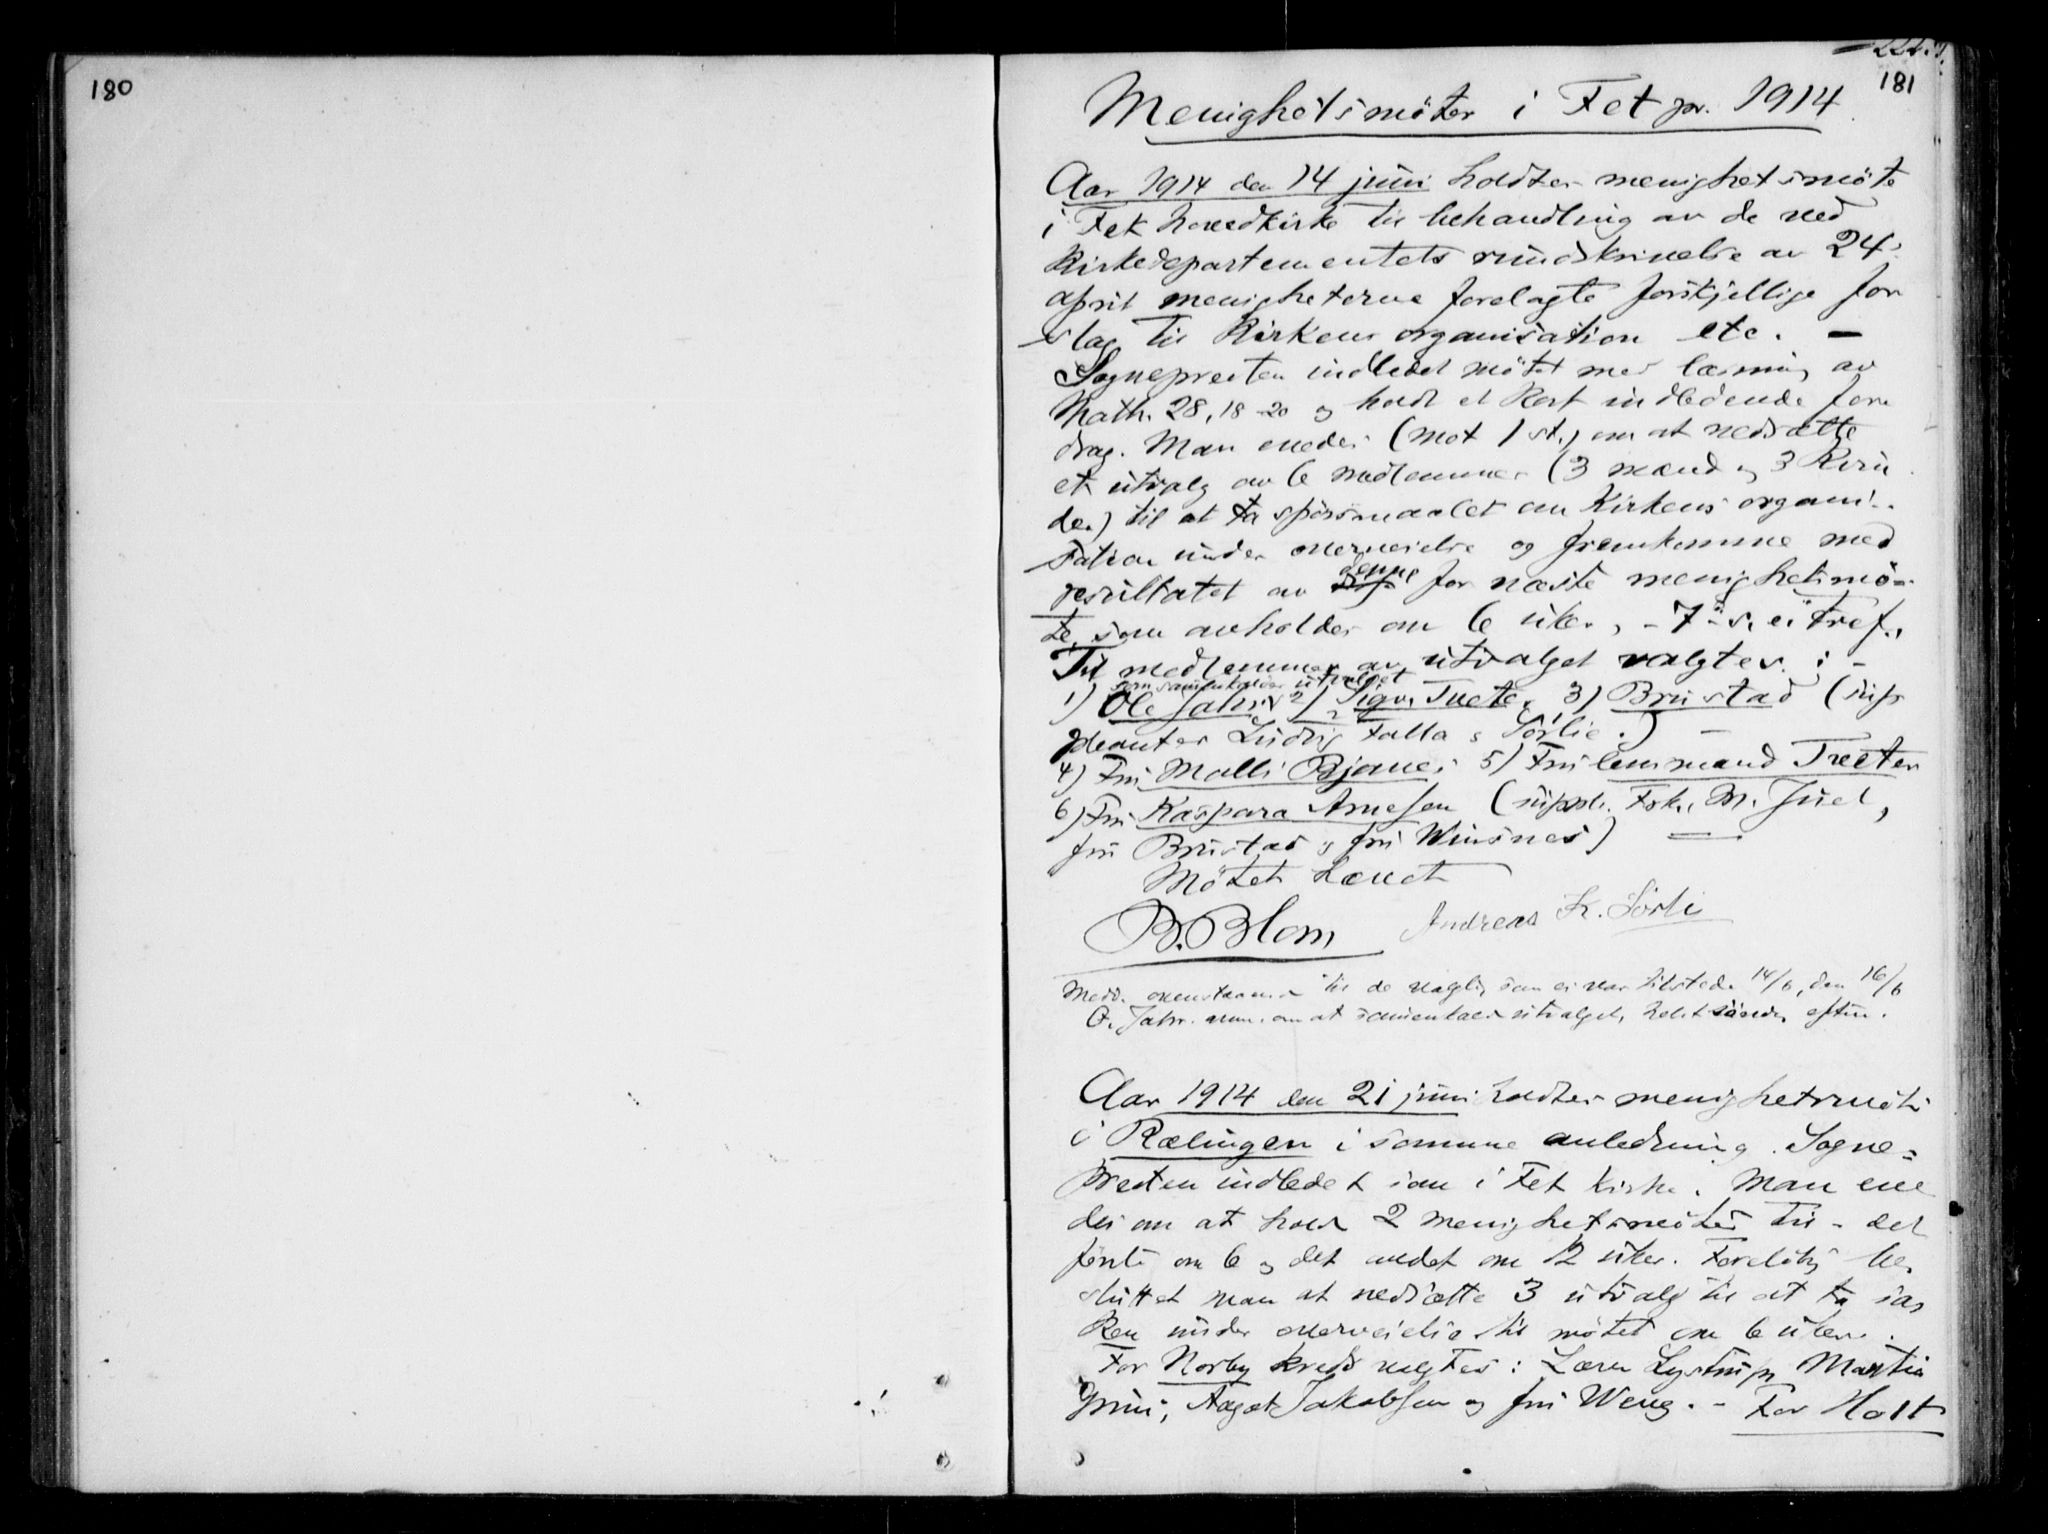 180
181
Menighetsmöter i Fet pr. 1914.
Aar 1914 den 14 juni holdtes menighetsmöte
i Fet hovedkirke til behandling av de ved
Kirkedepartementets rundskrivelse av 24.
april menigheterne forelagte forskjellige for
slag til Kirkens organisation etc. —
Sognepresten indledet mötet med læsning av
Math. 28, 18-20 og holdt et kort indledende fore
drag. Man enedes (mot 1 st.) om at nedsætte
et utvalg av 6 medlemmer (3 mænd og 3 Kvin
der) til at ta spörsmaalet om Kirkens organi-
sation under overveielse og fremkomme med
resultatet av denne for næste menighetsmö-
te, som avholdes om 6 uker, - 7 s. e. Tref.,
Til medlemmer av utvalget valgtes: -
som sammenkalder utvalget
1) Ole Jahr, 2) Sigv. Tveter, 3) Brustad (sup
pleanter Ludvig Falla og Sörlie.) —
4) Fru Malli Bjanes 5) Fru lensmand Tveter
6) Fru Kaspara Arnesen (suppl. Frk. M. Juel,
fru Brustad og fru Winsnes) =
Mötet hævet
B. Blom Andreas K. Sörli
Medd. ovenstaaende til de valgte, som ei var tilstede 14/6, den 16/6
O. Jahr anm. om at sammenkalde utvalget, helst söndag efterm.
Aar 1914 den 21 juni holdtes menighetsmöte
i Rælingen i samme anledning. Sogne-
presten indledet som i Fet kirke. Man ene
des om at holde 2 menighetsmöter til - det
förste om 6 og det andet om 12 uker. Forelöbig be
sluttet man at nedsætte 3 utvalg til at ta sa
ken under overveielse til mötet om 6 uker.
For Norby kreds valgtes: Lærer Lystrup, Martin
Grini, Aagot Jakobsen og fru Weng. - For Holt